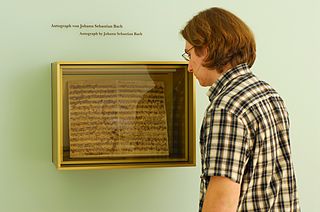 Autograph von Johann Sebastian Bach
Autograph by Johann Sebastian Bach